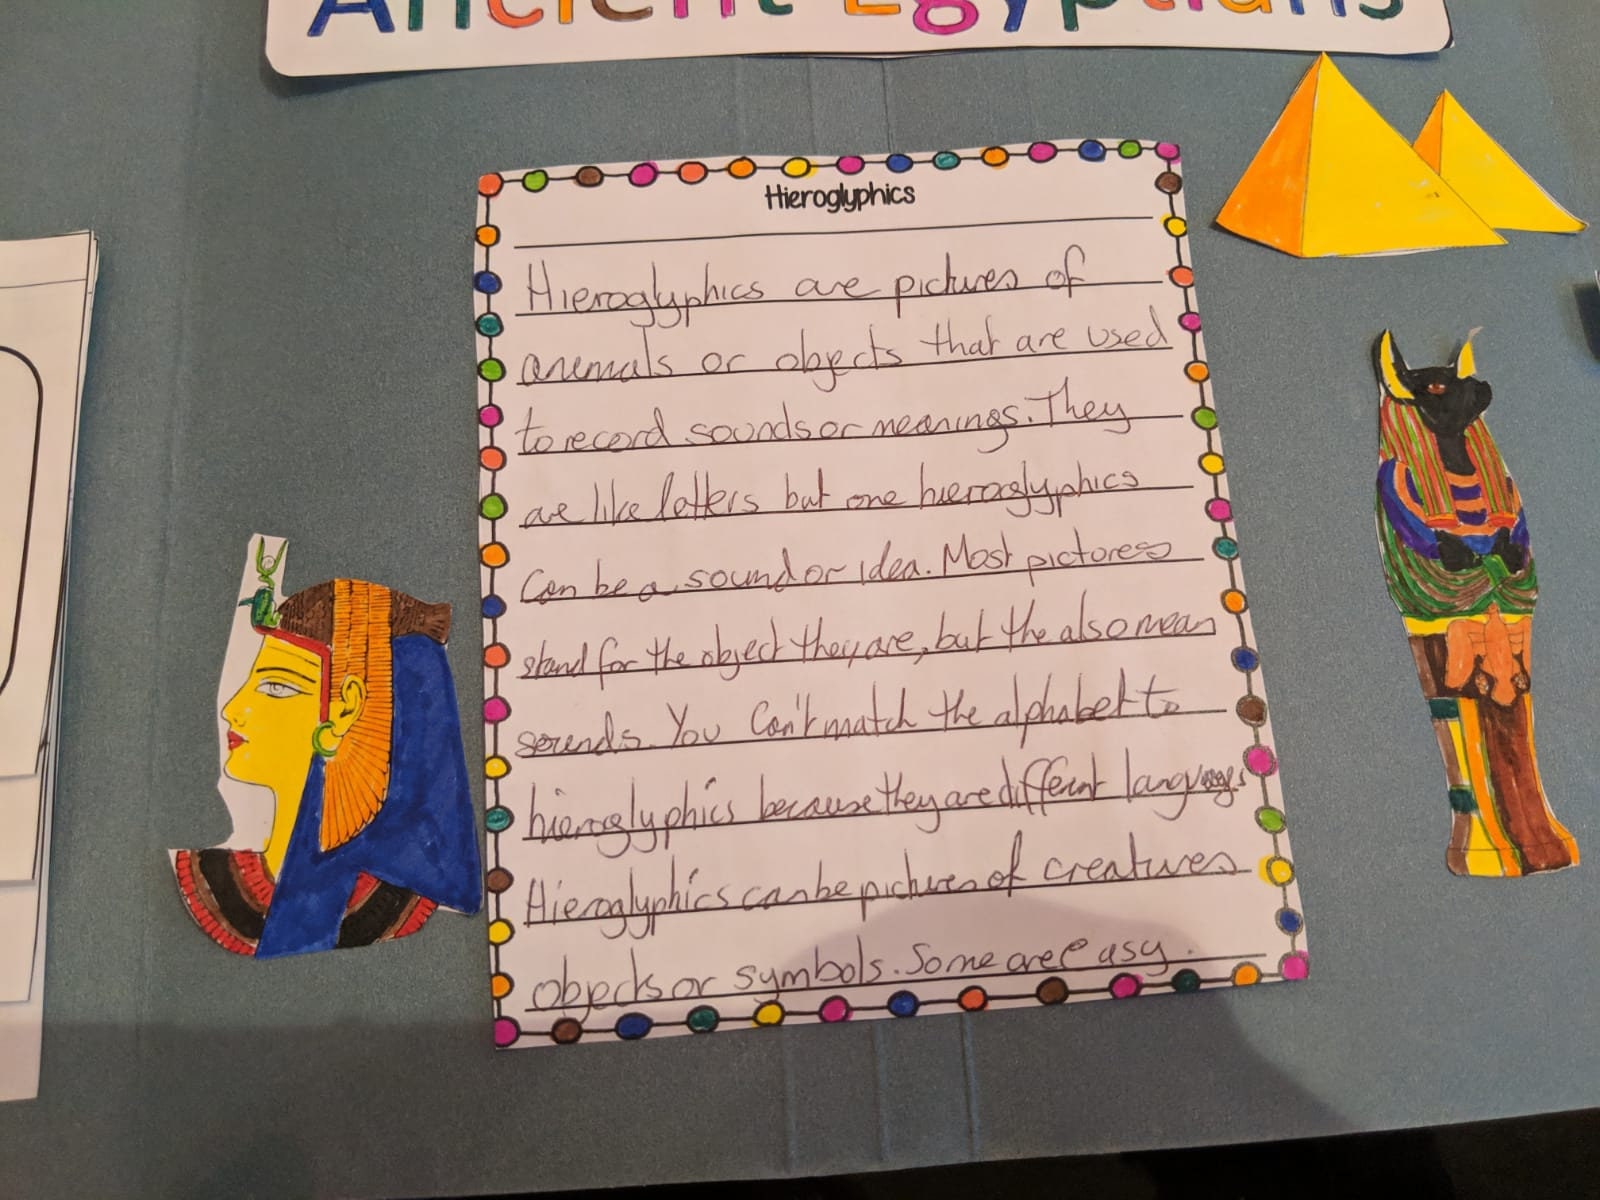 Ancient Egyptians
Hieroglyphics
Hieroglyphics are pictures of
animals or objects that are used
to record sounds or meanings. They
are like letters but one hieroglyphics
Can be a sound or idea. Most pictores
stand for the object they are, but the also mean
sounds. You Can't match the alphabet to
hieroglyphics because they are different languages
Hieroglyphics can be pictures of creatures
objects or symbols. Some are easy.